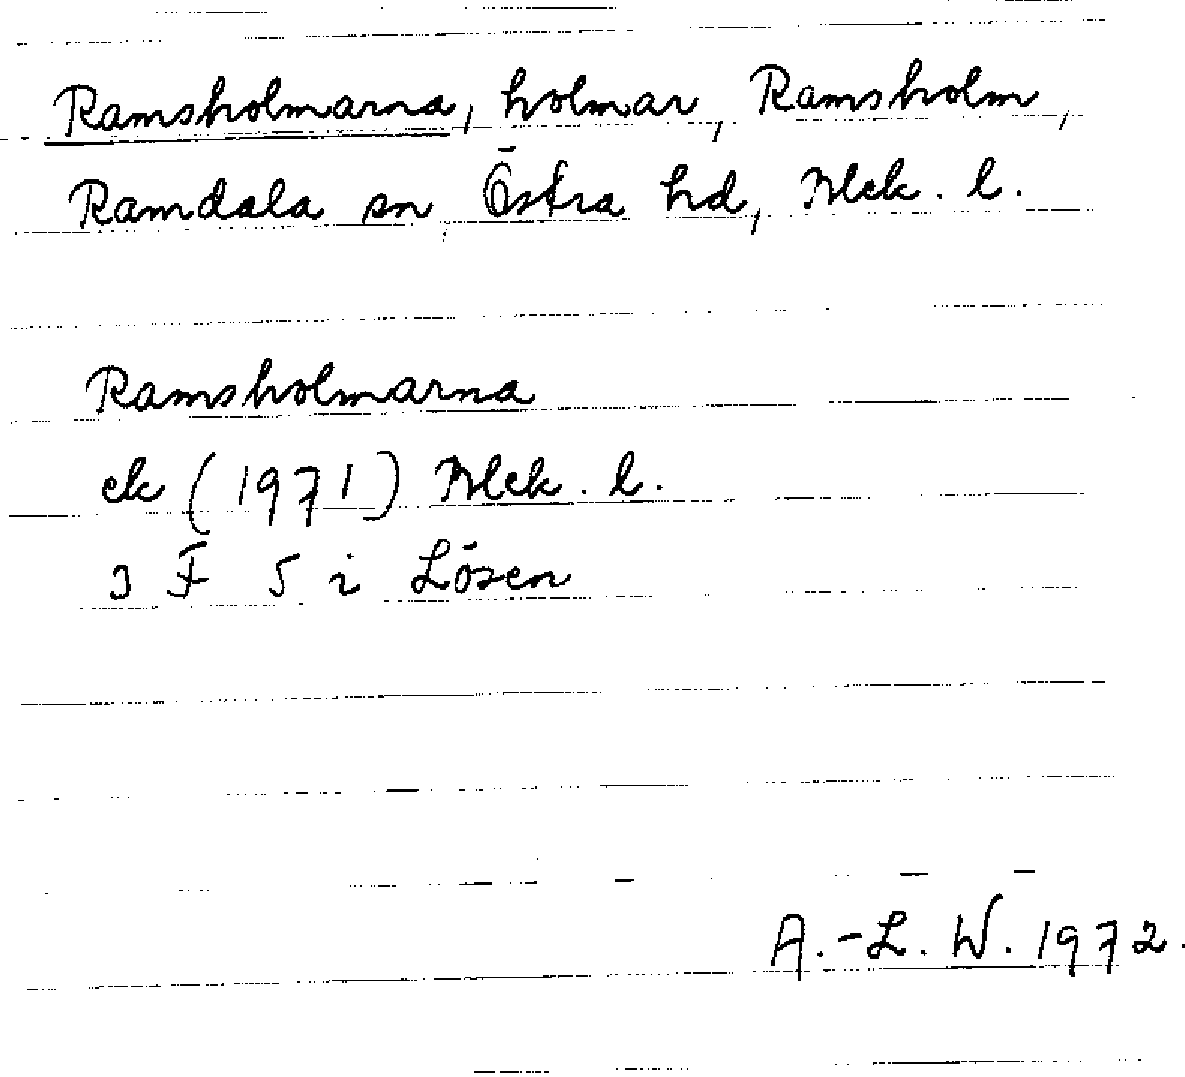 Ramsholmarna, holmar, Ramsholm,
Ramdala sn, Östra hd, Blek. l.
Ramsholmarna
ek (1971) Blek. l.
3 F 5 i Lösen
A.-L. W. 1972.